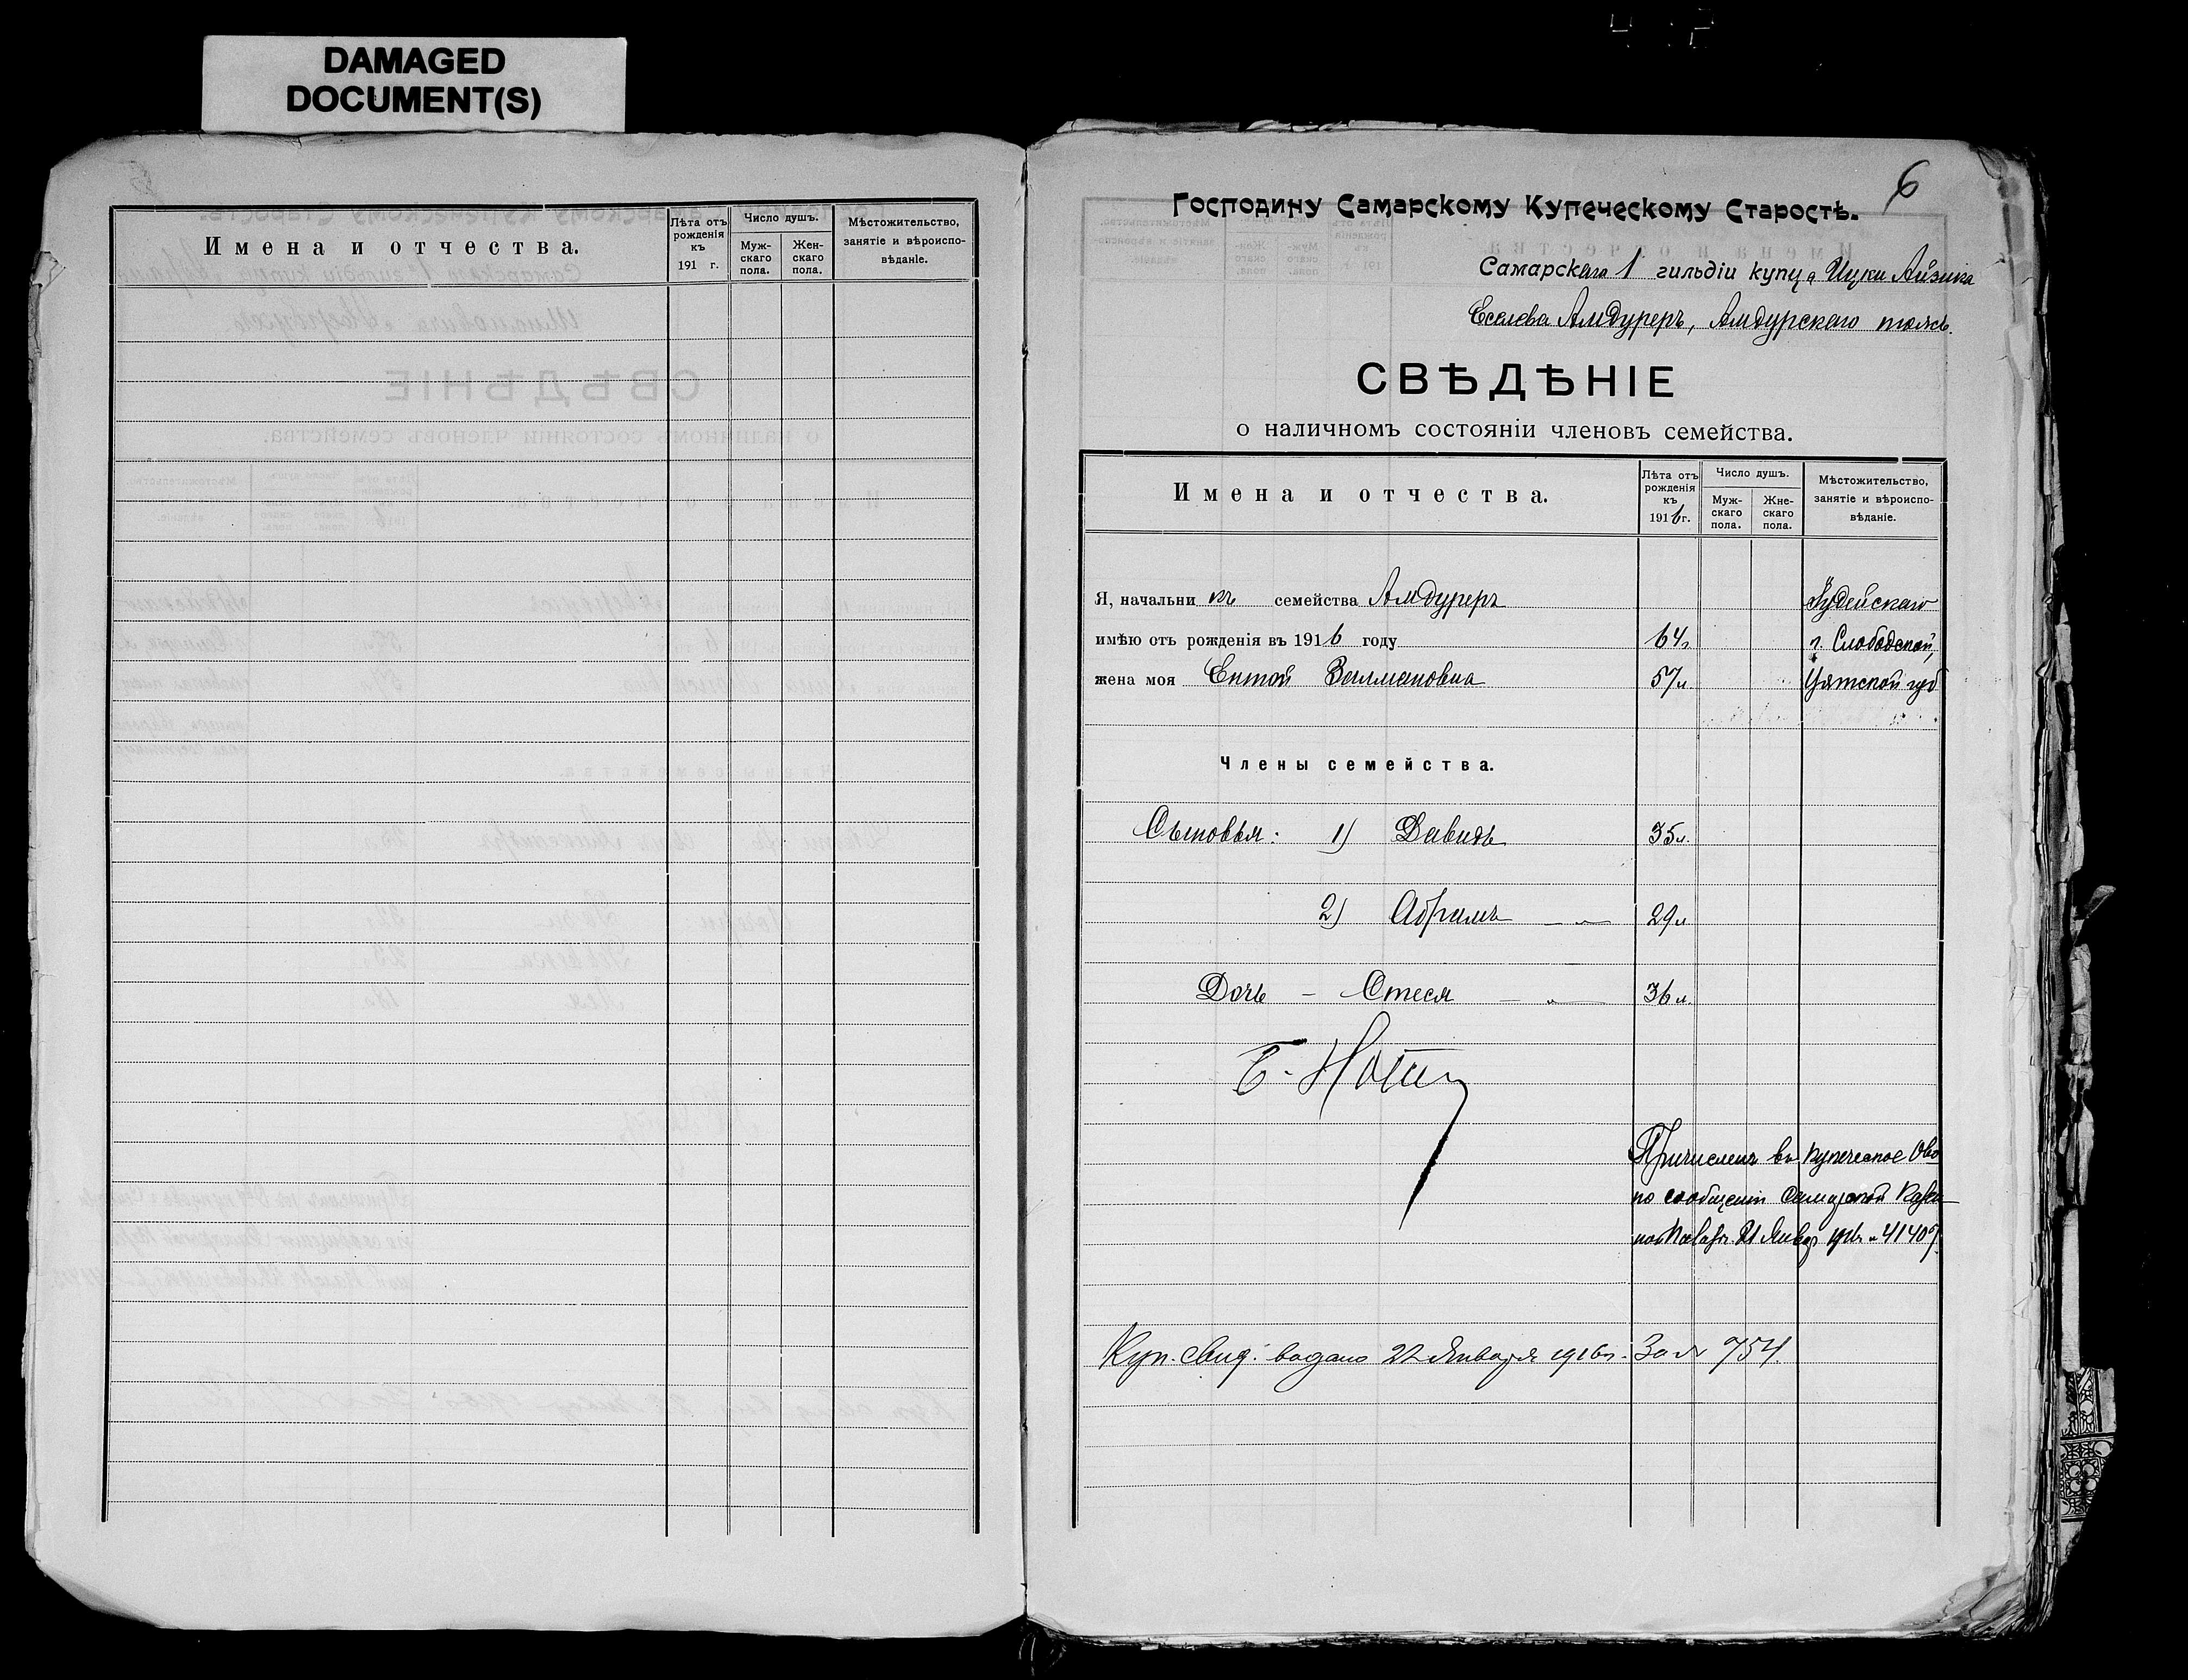 DAMAGED
DOCUMENT(S)
Имена и отчества.
Лѣта отъ рожденія къ 191 г.
Число душъ.
Муж-скаго пола.
Жен-скаго пола.
Мѣстожительство, занятіе и вѣроиспо-вѣданіе.
6
Господину Самарскому Купеческому Старостѣ.
Самарскаго 1 гильдіи купца Ицки Айзика
Еселева Амдуреръ, Амдурскаго тожъ.
СВѢДѢНІЕ
о наличномъ состояніи членовъ семейства.
Имена и отчества.
Лѣта отъ рожденія къ 1916 г.
Число душъ.
Муж-скаго пола.
Жне-скаго пола.
Мѣстожительство, занятіе и вѣроиспо-вѣданіе.
Я, начальникъ семейства Амдуреръ Іудейскаго
имѣю отъ рожденія въ 1916 году 64 г. Слободской,
жена моя Ентой Залмановна 57 л. Вятской губ
Члены семейства.
Сыновья: 1) Давидъ 35 л.
2) Абрамъ — " — 29 л
Дочь - Стеся — " — 36 л.
Причисленъ въ купеческое О-во
по сообщенію Самарской Казен
ной Палаты 21 Января 4140
Куп. свид. выдано 22 Января 1916 г. За № 754.